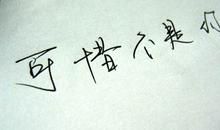 可惜不是